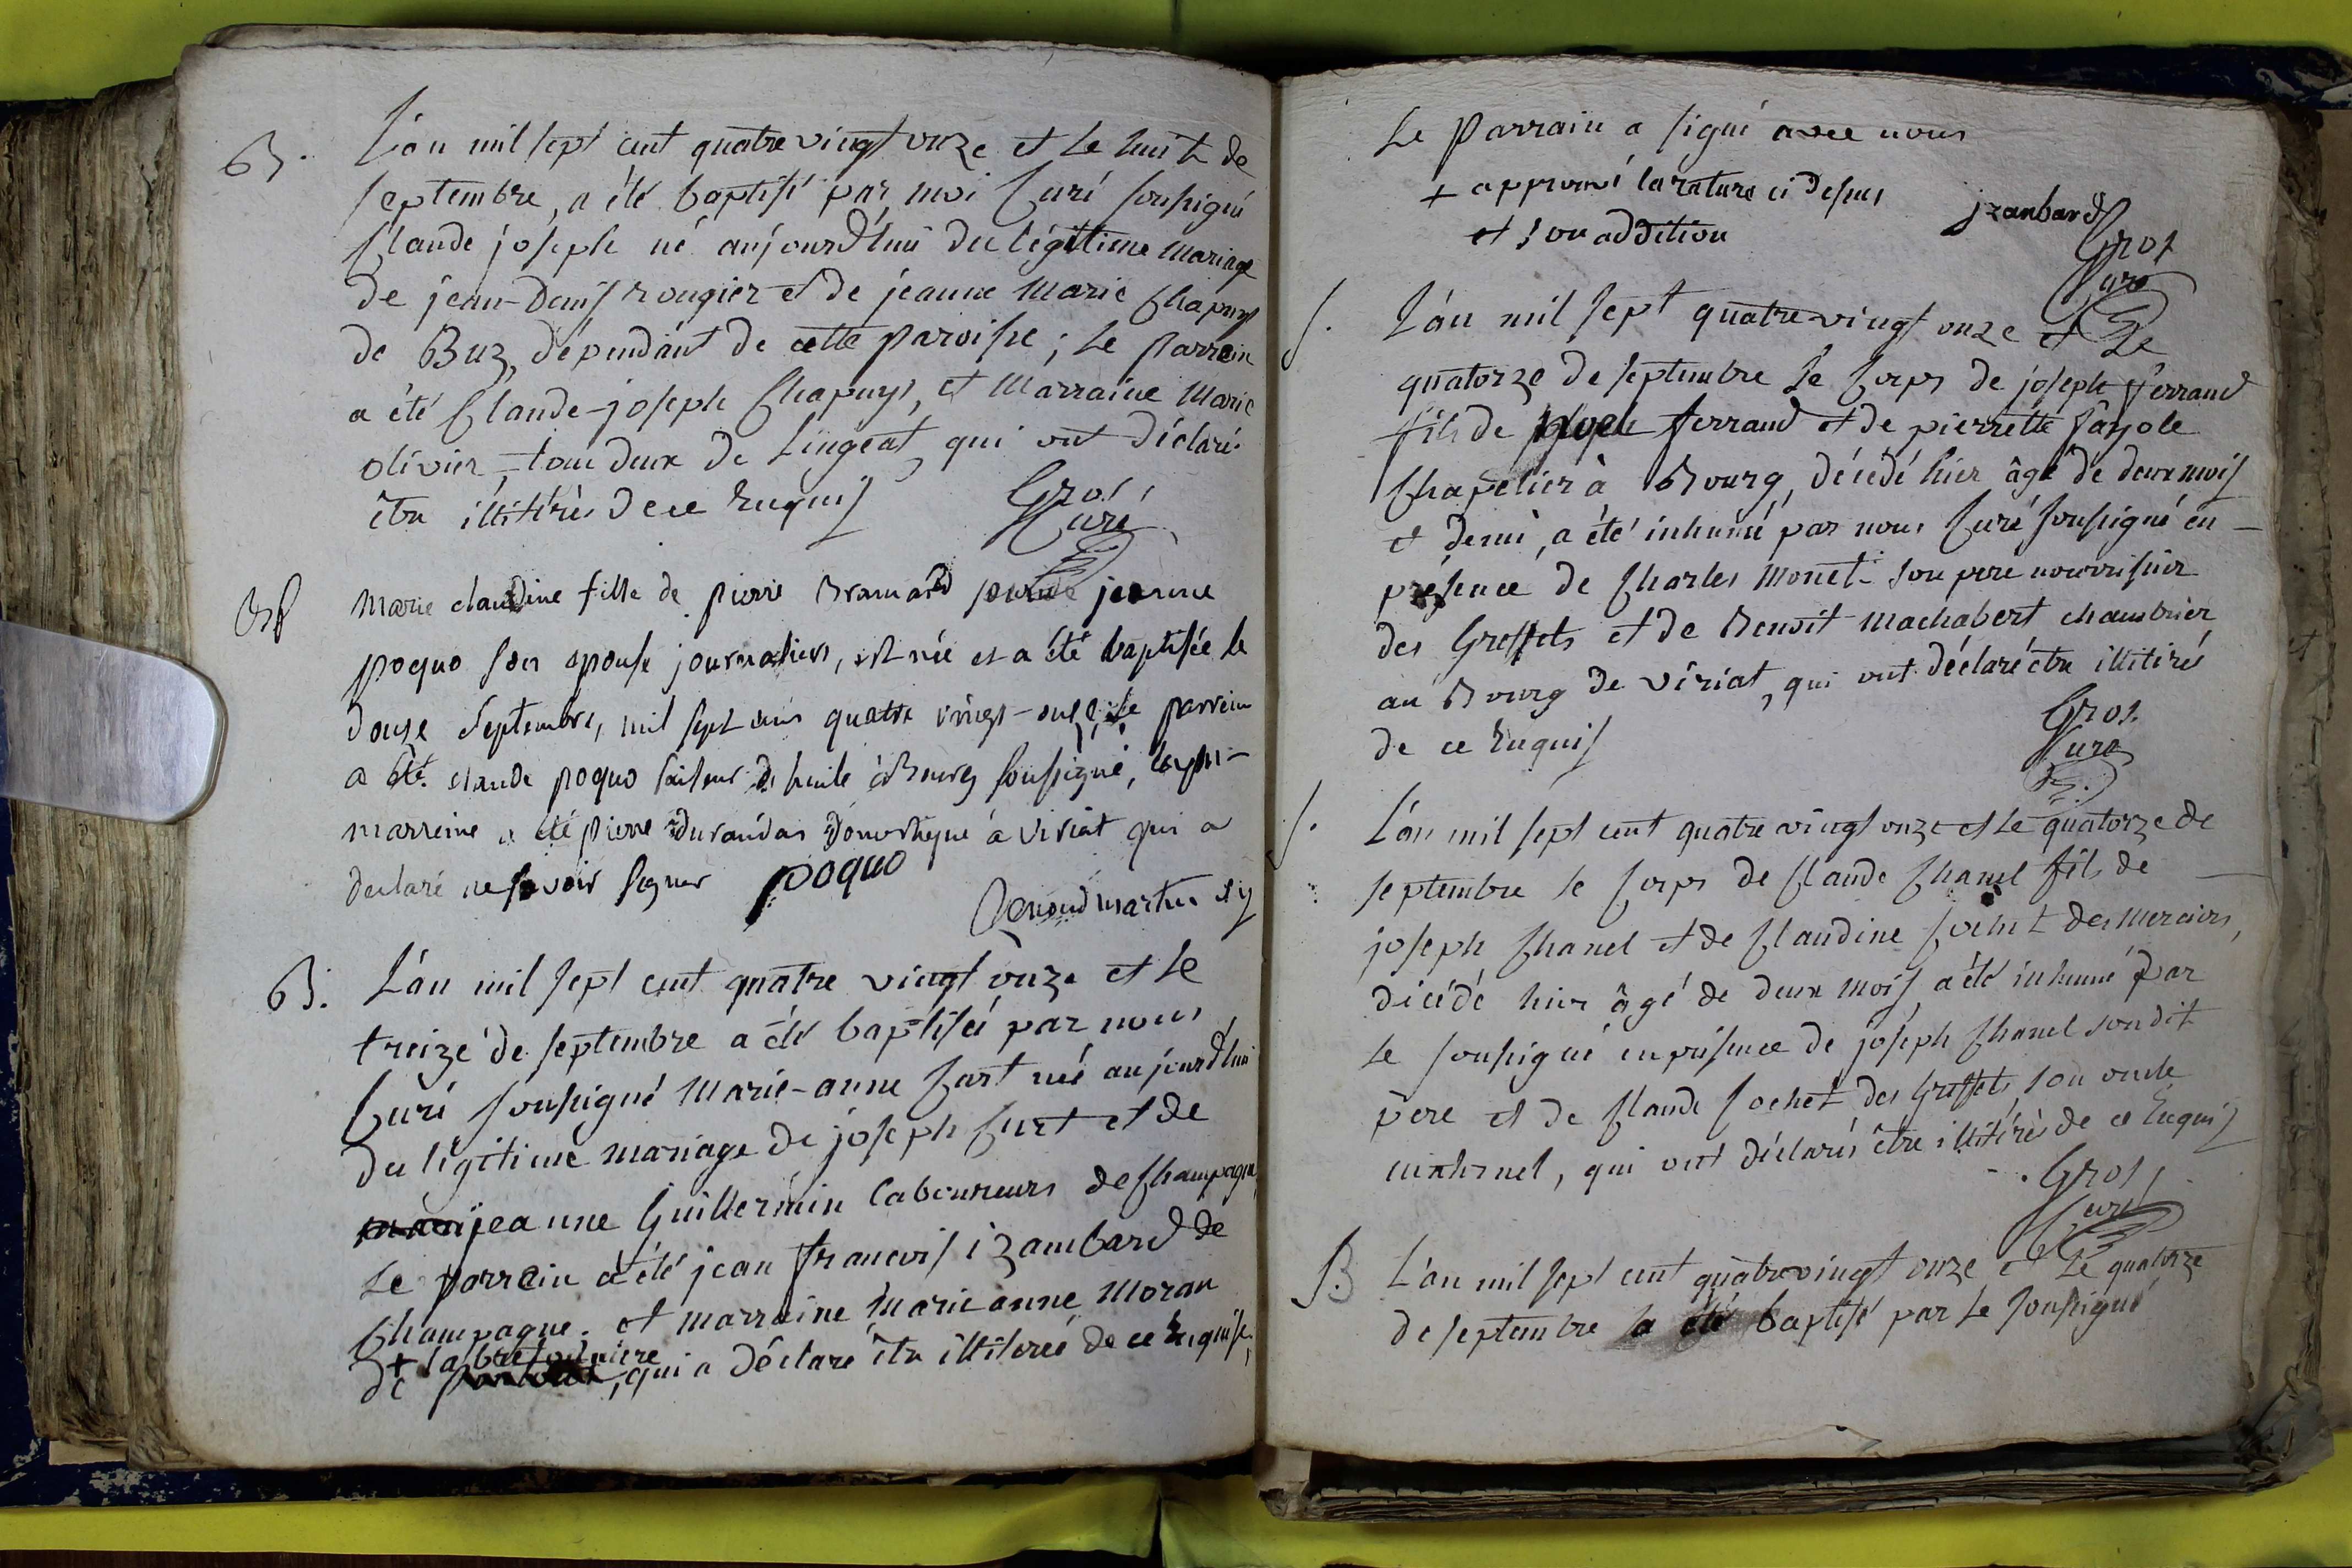 B. L'an mil sept cent quatre vingt onze et le huit de
septembre, a été baptisé par moi Curé soussigné
Claude joseph né aujourd'hui du légitime mariage
de jean-Denis rougier et de jeanne Marie Chapuys
de Buz, dépendant de cette paroisse ; le Parrain
a été Claude-joseph Chapuys, et Marraine Marie
olivier tous deux de Lingeat, qui ont déclaré
être illitérés de ce Enquis
Gros,
Curé
marie claudine fille de pierre Bramard jeanne
poquo son epouse journaliers, est née et a été baptisée le
douze septembre, mil sept cens quatre vingt-onze, le parrein
a été claude poquo faiseur d. huile à Bourg soussigné,
marreine a été pierre Durandas Domestique à viriat qui a
declaré ne savoir signer poquo
Renoud martin
B. L'an mil sept cent quatre vingt onze et le
treize de septembre a été baptisée par nous
Curé soussigné Marie-anne Curt née aujourd'hui
du légitime mariage de joseph Curt et de
jeanne Guillermin laboureurs de Champagne
Le parrain a été jean francois izambard de
Champagne. et marraine Marie anne Moran
+ la bretonniere
de , qui a déclaré être illiterée de ce Enquise,
Le Parrain a signé avec nous
+ approuvé la rature ci dessus
et son addition
jzanbard
Gros
Curé
S. L'an mil sept quatre vingt onze et le
quatorze de septembre le Corps de joseph ferrand
fils de ferrand et de pierrette fayole
Chapelier à Bourg, décédé hier âgé de deux mois
et demi, a été inhumé par nous Curé soussigné en
présence de Charles Monet son pere nourrissier
des Greffets et de Benoit Machabert chambrier
au Bourg de viriat, qui ont déclaré être illitirés
de ce Enquis
Gros.
Curé
S. L'an mil sept cent quatre vingt onze et le quatorze de
septembre le Corps de Claude Chanel fils de
joseph Chanel et de Claudine Cochet des Merciers,
décédé hier âgé de deux mois, a été inhumé par
le soussigné en présence de joseph Chanel sondit
père et de Claude Cochet des Greffets son oncle
maternel, qui ont déclarés être illitérés de ce Enquis
Gros,
Curé
B L'an mil sept cent quatre vingt onze et le quatorze
de septembre a été baptisé par le soussigné